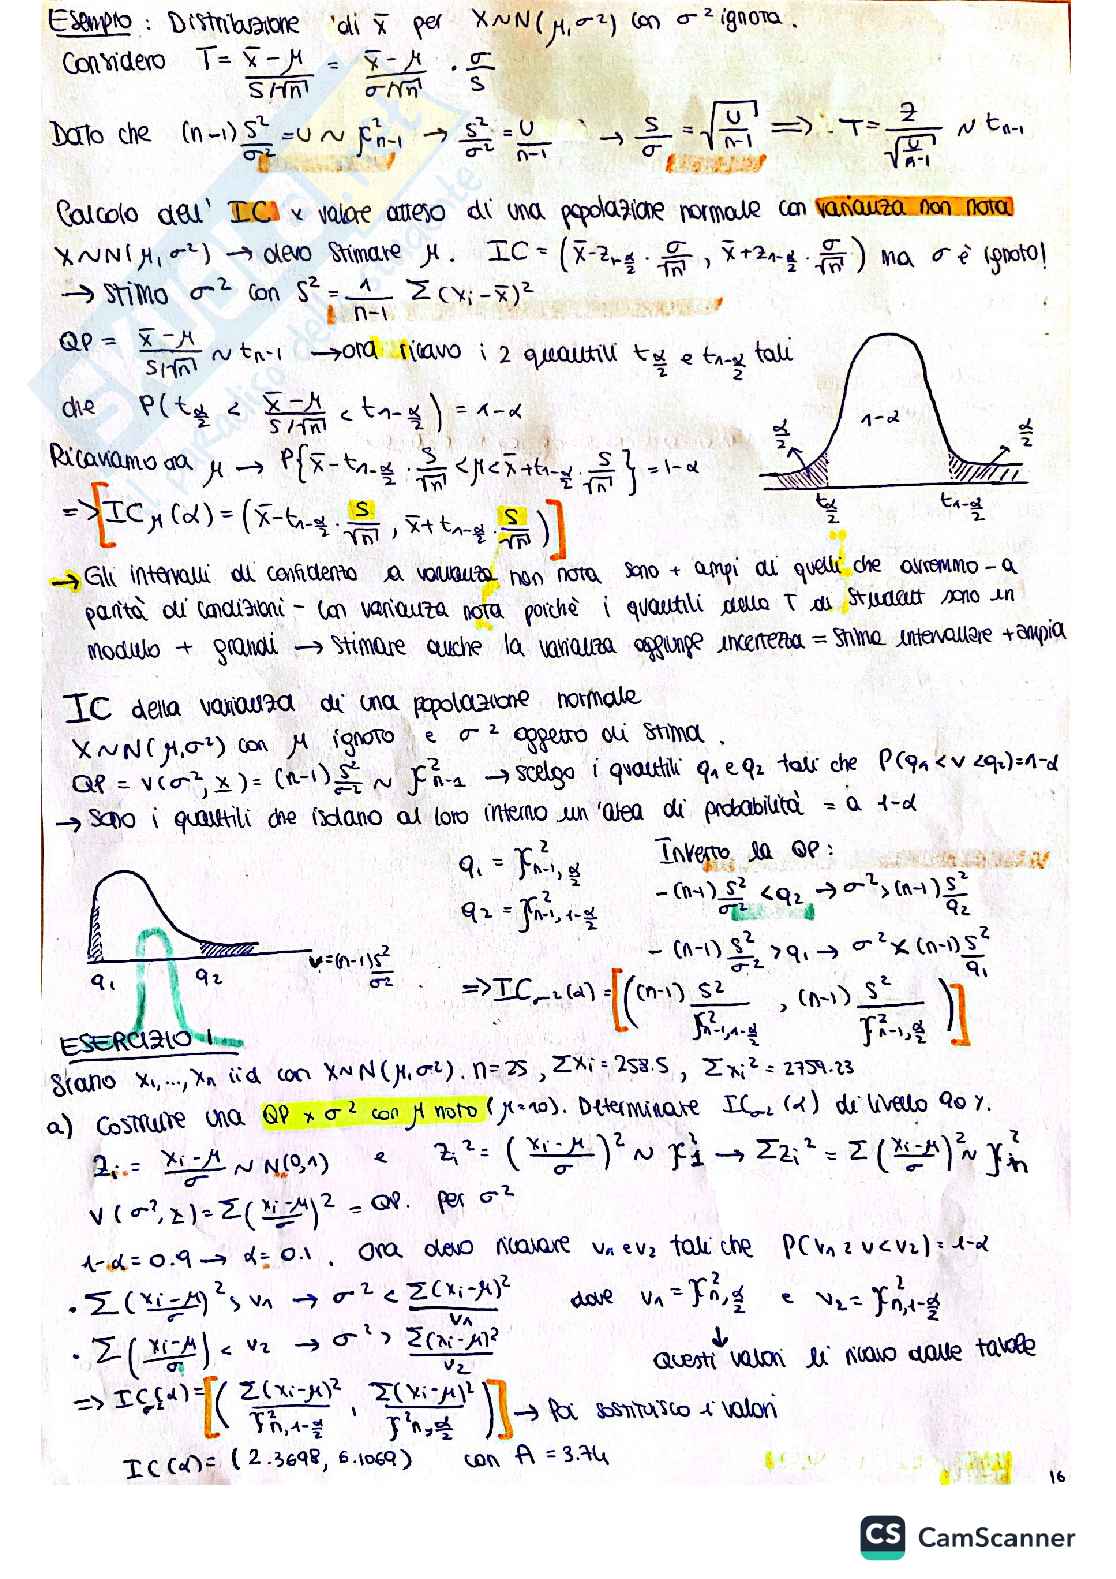 Esempio: Distribuzione di x̄ per X~N(μ,σ²) con σ² ignota.
Considero T = (x̄-μ)/(S/√n) = (x̄-μ)/(σ/√n) · σ/S
Dato che (n-1) S²/σ² = U ~ χ²n-1 → S²/σ² = U/(n-1) → S/σ = √(U/(n-1)) ⟹ T = Z/√(U/(n-1)) ~ tn-1
Calcolo dell' IC x valore atteso di una popolazione normale con varianza non nota
X~N(μ,σ²) → devo stimare μ. IC = (x̄-z1-α/2 · σ/√n , x̄+z1-α/2 · σ/√n) ma σ è ignoto!
→ stimo σ² con S² = 1/(n-1) Σ(xi-x̄)²
QP = (x̄-μ)/(S/√n) ~ tn-1 → ora ricavo i 2 quantili tα/2 e t1-α/2 tali
che P(tα/2 < (x̄-μ)/(S/√n) < t1-α/2) = 1-α
1-α
α/2
α/2
tα/2
t1-α/2
Ricaviamo da μ → P{x̄-t1-α/2 · S/√n < μ < x̄+t1-α/2 · S/√n} = 1-α
=> [ICμ(α) = (x̄-t1-α/2 · S/√n , x̄+t1-α/2 · S/√n)]
→ Gli intervalli di confidenza a varianza non nota sono + ampi di quelli che avremmo - a
parità di condizioni - con varianza nota poichè i quantili della T di Student sono in
modulo + grandi → stimare anche la varianza aggiunge incertezza = stima intervallare + ampia
IC della varianza di una popolazione normale
X~N(μ,σ²) con μ ignoto e σ² oggetto di stima.
QP = v(σ²,x) = (n-1) S²/σ² ~ χ²n-1 → scelgo i quantili q1 e q2 tali che P(q1<v<q2)=1-α
→ Sono i quantili che isolano al loro interno un'area di probabilità = a 1-α
q1
q2
v=(n-1)S²/σ²
q1 = χ²n-1, α/2
q2 = χ²n-1, 1-α/2
Inverto la QP:
- (n-1) S²/σ² < q2 → σ² > (n-1) S²/q2
- (n-1) S²/σ² > q1 → σ² < (n-1) S²/q1
=> ICσ2(α) = [((n-1) S²/χ²n-1,1-α/2 , (n-1) S²/χ²n-1,α/2)]
ESERCIZIO 1
Siano x1,...,xn iid con X~N(μ,σ²). n=25, Σxi=258.5, Σxi²=2759.23
a) Costruire una QP x σ² con μ noto (μ=10). Determinare ICσ2(α) di livello 90%.
Zi = (xi-μ)/σ ~ N(0,1) e Zi² = ((xi-μ)/σ)² ~ χ²1 → ΣZi² = Σ((xi-μ)/σ)² ~ χ²n
V(σ²,x) = Σ((xi-μ)/σ)² = QP. per σ²
1-α=0.9 → α=0.1. Ora devo ricavare v1 e v2 tali che P(v1 ≥ v<v2)=1-α
· Σ((xi-μ)/σ)² > v1 → σ² < Σ(xi-μ)²/v1 dove v1 = χ²n,α/2 e v2 = χ²n,1-α/2
· Σ((xi-μ)/σ) < v2 → σ² > Σ(xi-μ)²/v2
Questi valori li ricavo dalle tavole
=> ICσ2(α) = [(Σ(xi-μ)²/χ²n,1-α/2 , Σ(xi-μ)²/χ²n,α/2)] → Poi sostituisco i valori
IC(α) = (2.3698, 6.1069) con A = 3.74
16
CS CamScanner